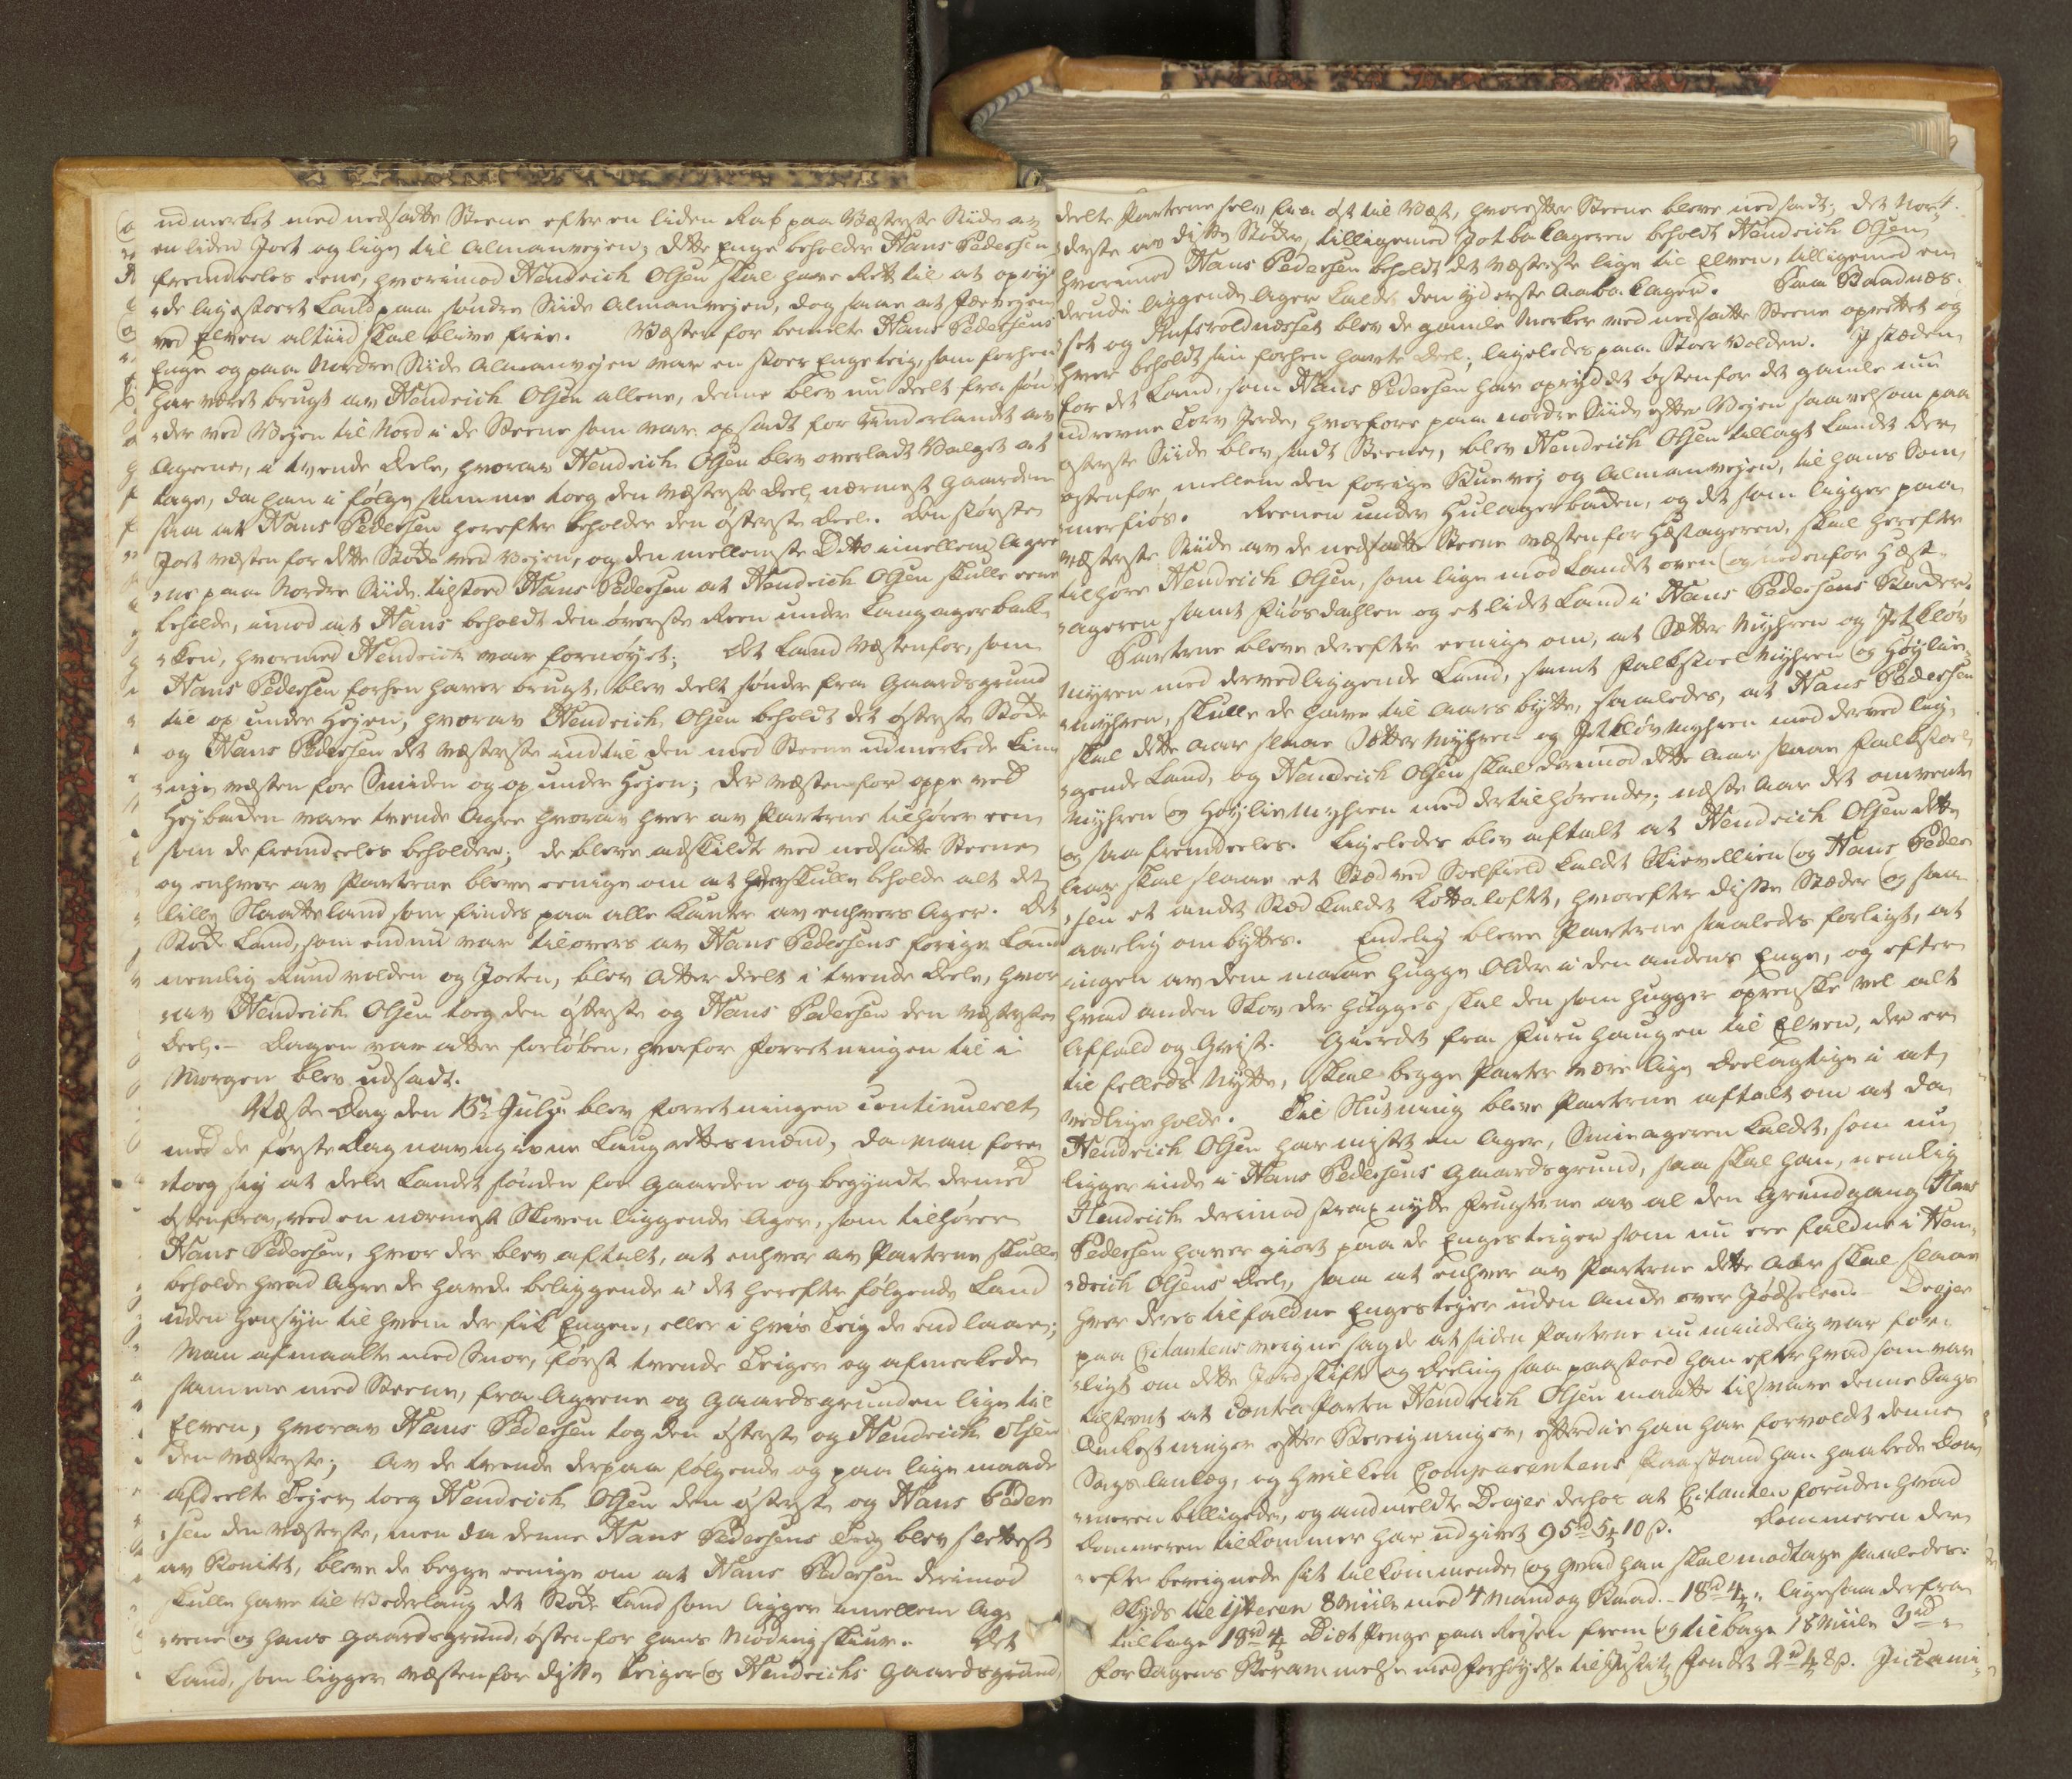 udmerket med nedsatte Steene efter en liden Rab paa Væsterste Siide av
en liden Jort og lige til Almanvejen; dette Enge beholder Hans Pedersen
fremdeeles eene, hvorimod Hendrich Olsen skal have Ret til at oprÿd-
:de ligestort Land paa søndre Siide Almanvejen, dog saa at Færvejen
ved Elven altiid skal blive frie. Væsten for bemelte Hans Pedersens
Enge og paa Nordre Siide Almanvejen var en stoer Enge teig, som forhen
har været brugt av Hendrich Olsen allene, denne blev nu deelt fra søn-
:der ved Vejen til Nord i de Steene som var opsadt for Underlandt av
Agerne, i tvende Deele, hvorav Hendrich Olsen blev overladt Valget at
tage, da han i følge samme toeg den Væsterste Deel, nærmest Gaarden
saa at Hans Pedersen herefter beholder den østerste Deel. Den største
Jort væsten for dette Støde ved Vejen, og den mellemste Ditto imellem Agre
:ne paa Nordre Siide tilstoed Hans Pedersen at Hendrich Olsen skulle eene
beholde, imod at Hans beholdt den øverste Reen under Langagerbak-
:ken, hvormed Hendrich var fornøyet; Det Land Væstenfor, som
Hans Pedersen forhen haver brugt, blev deelt sønder fra Gaardsgrund
til op under Hejen, hvorav Hendrich Olsen beholdt det østerste Støde
og Hans Pedersen det væsterste indtil den med Steene udmerkede Lin-
:nie væsten for Smiden og op under Hejen; der væstenfor oppe ved
Hejbakken vare tvende Agre hvorav hver av Parterne tilhører een
som de fremdeeles beholder; de bleve adskildt ved nedsatte Steene
og enhver av Parterne bleve eenige om at hver skulle beholde alt det
lille Slaatteland som findes paa alle Kanter av enhvers Ager. Det
Støde Land, som endnu var tilovers av Hans Pedersens forige Land
nemlig Rundvolden og Jorten, blev atter deelt i tvende Deele, hvor
:av Hendrich Olsen toeg den østerste og Hans Pedersen den væsterste
Deel. – Dagen var atter forløben, hvorfor Forretningen til i
Morgen blev udsadt.
Næste Dag den 15de Julÿ blev Forretningen continueret
med de første Dag navngivne Laugrettesmænd, da man fore
:toeg sig at deele Landet sønden for Gaarden og begyndte dermed
østenfra, ved en nærmest Skoven liggende Ager, som tilhører
Hans Pedersen, hvor der blev aftalt, at enhver av Parterne skulle
beholde hvad Agre de havde beliggende i det herefter følgende Land
uden Hensyn til hvem der fik Engen, eller i hvis Teig de end laae;
Man afmaalte med Snor, først tvende Teiger og afmerkede
samme med Steene, fra Agrene og Gaardsgrunden lige til
Elven, hvorav Hans Pedersen tog den østerste og Hendrich Olsen
den væsterste; Av de tvende derpaa følgende og paa lige maade
afdeelte Teiger toeg Hendrich Olsen den østerste og Hans Peder
:sen den væsterste, men da denne Hans Pedersens Teig blev slettest
av Bonitet, bleve de begge eenige om at Hans Pedersen derimod
skulle have til Vederlaug det Støde Land som ligger imellem Ag-
:rene og hans Gaardsgrund, østenfor hans Mødingskiur. Det
Land, som ligger væstenfor disse Teiger og Hendrichs Gaardsgrund
deelte Parterne selv fra Øst til Væst, hvorefter Steene bleve nedsadt; det Nor-
:derste av disse Støder, tilligemed Jotbakageren beholdt Hendrich Olsen
hvorimod Hans Pedersen beholdt det væsterste lige til Elven, tilligemed en
derudi liggende Ager kaldet den yderste Aabakager. Paa Baadnæs-
:set og Rufsvoldnæsset blev de gamle Merker ved nedsatte Steene oprettet og
hver beholdt sin forhen havte Deel; ligeledes paa Stoer Volden. I stæden
for det Land, som Hans Pedersen har opryddet østenfor det gamle nu
udrevne Torv Jerde, hvorfore paa nordre Siide efter Vejen saavelsom paa
østerste Siide blev sadt Steene, blev Hendrich Olsen tillagt Landet der
østenfor, mellem den forige Buevej og Almanvejen, til hans Som-
:merfiøs. Reenen under Hulagerbakken, og det som ligger paa
væsterste Siide av de nedsatte Steene væstenfor Hæstageren, skal herefter
tilhøre Hendrich Olsen, som lige mod Landet oven og nedenfor Hæst-
:ageren samt Fiøsdahlen og et lidet Land i Hans Pedersens Støder.
Parterne bleve derefter eenige om, at Sætter Myhren og Jetkløv
Myren med derved liggende Land, samt Falkstoel Myhren og Høylie
:Myhren, skulle de have til Aars bytte, saaledes, at Hans Pedersen
skal dette Aar slaae Sætter Myhren og Jetkløv Myhren med derved lig-
:gende Land, og Hendrich Olsen skal derimod dette Aar slaae Falkstoel
Myhren og Høylie Myhren med dertilhørende; næste Aar det omvente
og saa fremdeeles. Ligeledes blev aftalt at Hendrich Olsen dette
Aar skal slaae et Stæd ved Soelfield kaldet Skievellien og Hans Peder
:sen et andet Stæd kaldet Kottaloftet, hvorefter disse Stæder og saa
aarlig ombyttes. Endelig bleve Parterne saaledes forligt, at
ingen av dem maae hugge Older i den andens Enge, og efter
hvad anden Skov der hugges skal den som hugger oprenske vel alt
Affald og Qvist. Gierdet fra Furuhaugen til Elven, der er
til felleds Nytte, skal begge Parter være lige Deelagtige i at
vedligeholde. Til Slutning bleve Parterne aftalt om at da
Hendrich Olsen har mistet en Ager, Smieageren kaldet, som nu
ligger inde i Hans Pedersens Gaardsgrund, saa skal han, nemlig
Hendrich derimod strax nyde Frugterne av al den Grundgang Hans
Pedersen haver giort paa de Engesteiger som nu ere faldne i Hen-
:drich Olsens Deel, saa at enhver av Parterne dette Aar skal slaae
hver deres tilfaldne Engesteyer uden Anke over Jødselen. – Drejer
paa Citantens veigne sagde at siden Parterne nu mindelig var for-
:ligt om dette Jordskifte og Deeling saa paastoed han efter hvad som var
tilstrent at Contra Parten Hendrich Olsen maatte tilsvare denne Sags
Omkostninger efter Beregninger, efterdie han har forvoldt denne
Sags Anlæg, og hvilken Comparentens Paastand han haabede Dom
:meren billigede, og anmeldte Drejer derhos at Citanten foruden hvad
Dommeren tilkommer har udgivet 95rd 5 10 s. Dommeren der
:efter beregnede sit tilkommende og hvad han skal modtage saaledes:
Skyds til Ytteren 8 Miile med 4 Mand og Baad - 18rd 4 " ligesaa derfra
tilbage 18rd 4 Diæt Penge paa Rejsen frem og tilbage 18 Miile 3rd "
for Sagens Berammelse med Forhøyelse til Justitz Fondet 2rd 4 8 s. Incami-